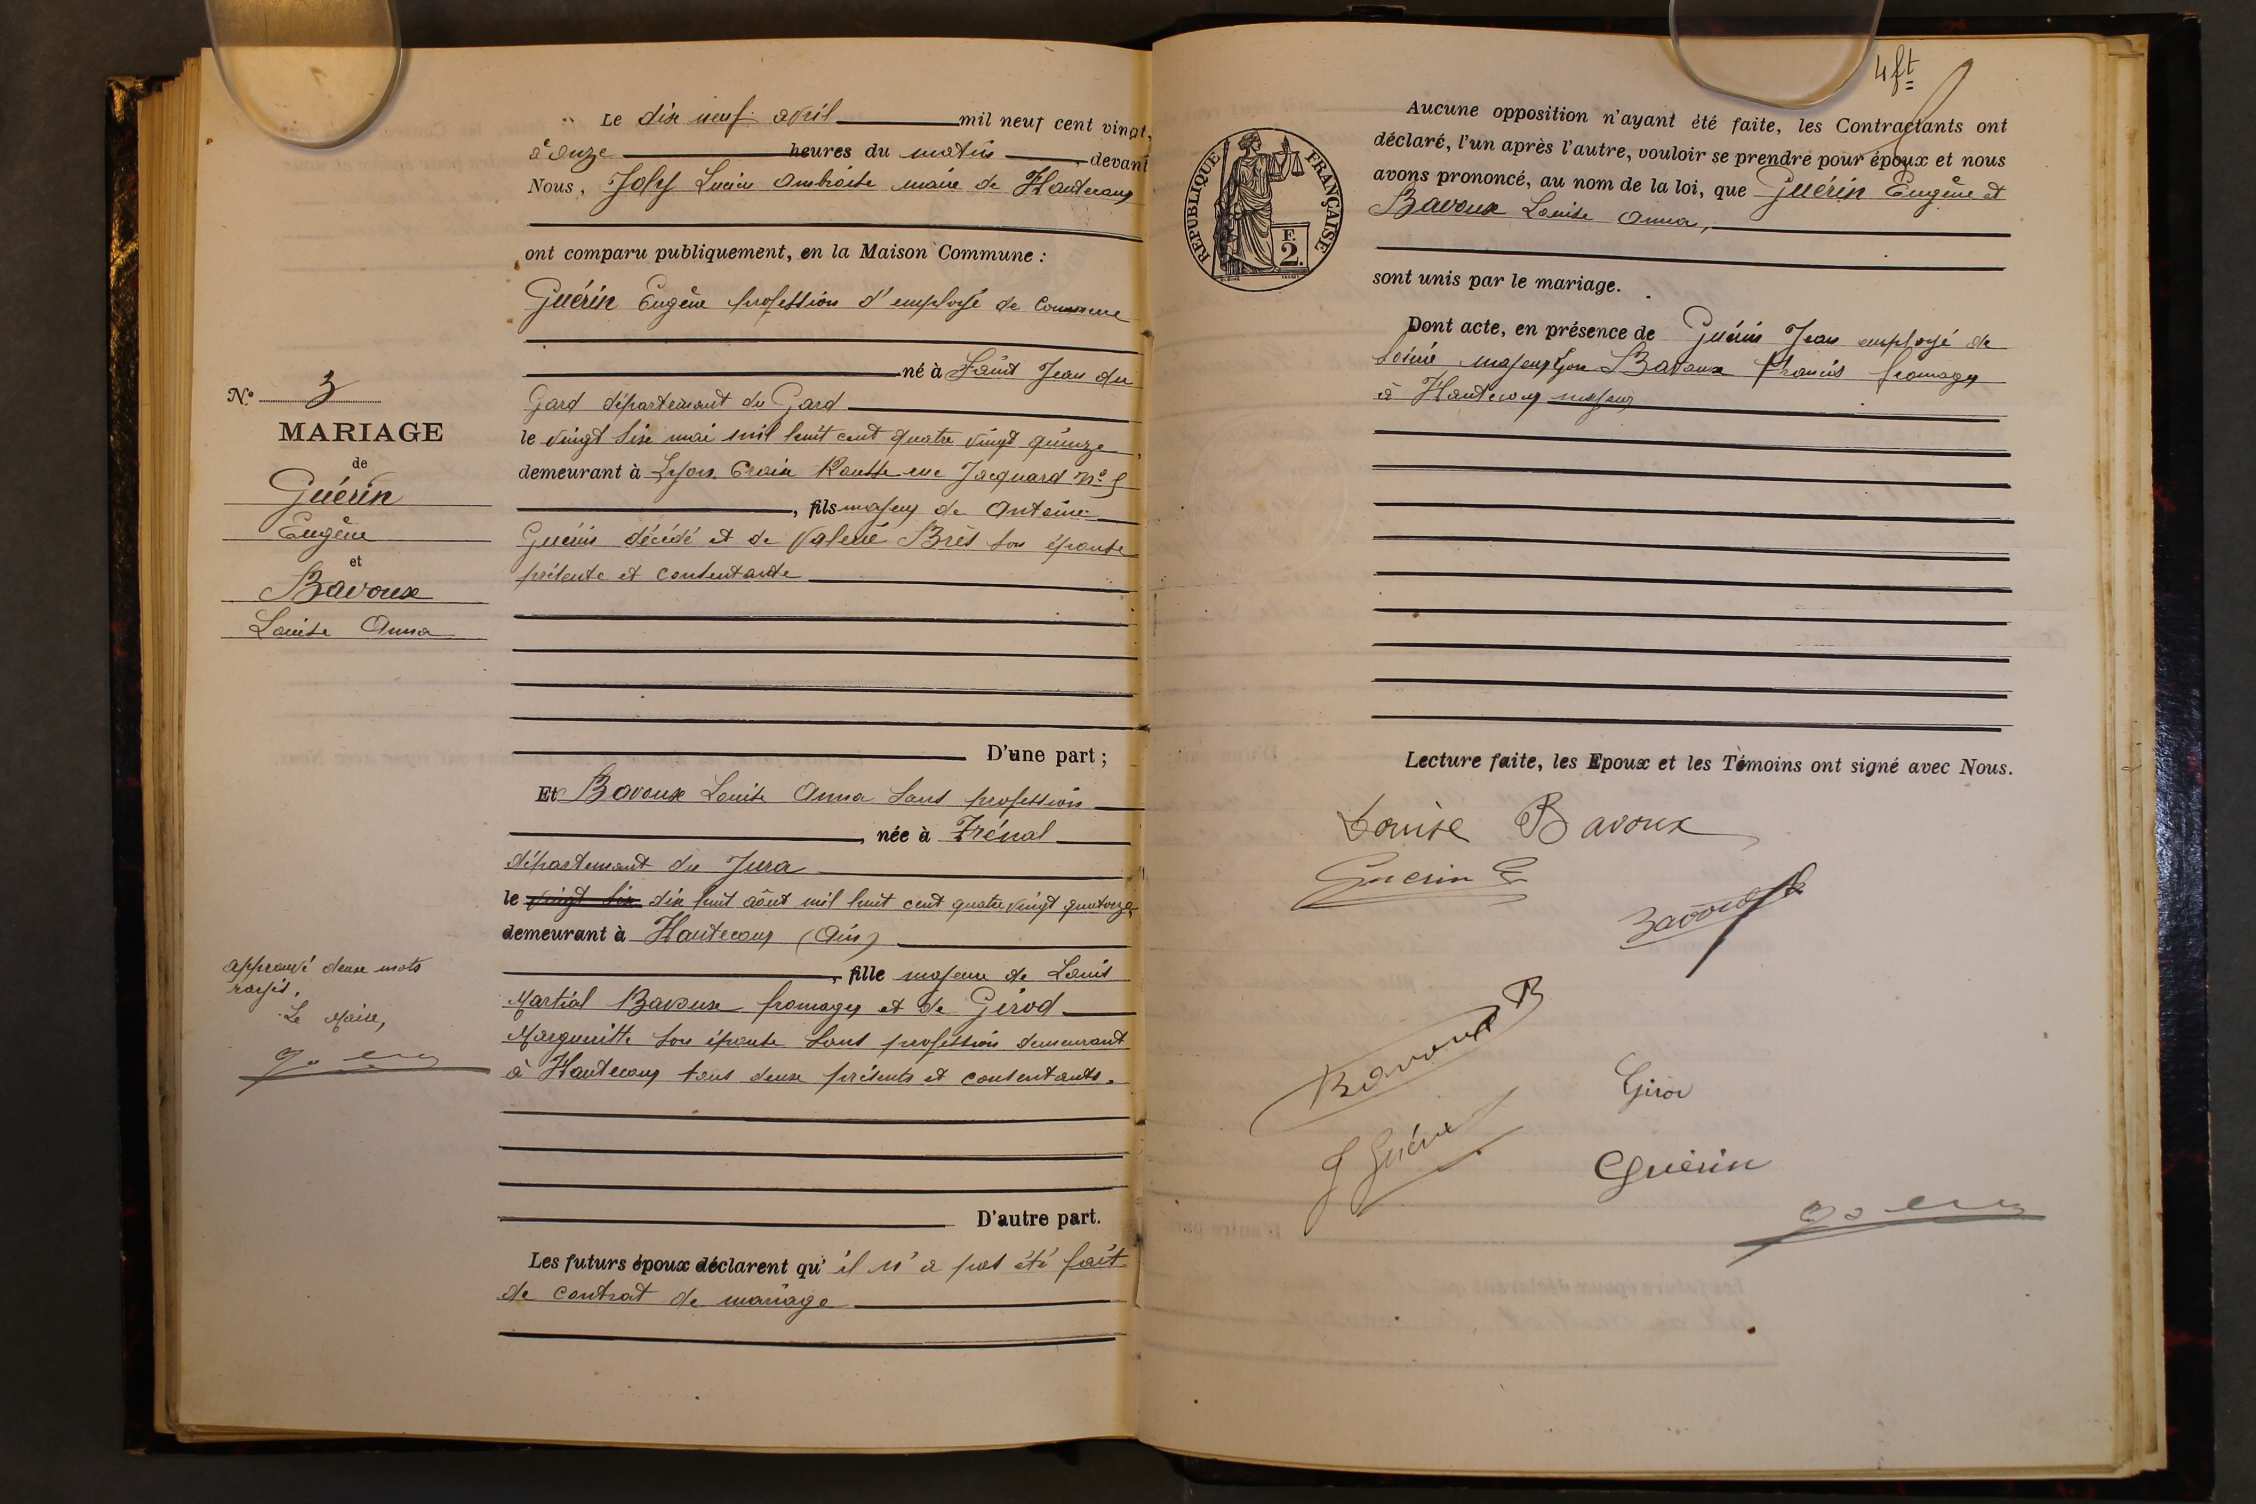 Le dix neuf avril mil neuf cent vingt,
à onze heures du matin, devant
Nous, Joly Lucien Ambroise maire de Hautecour
ont comparu publiquement, en la Maison Commune :
Guérin Eugène profession d'employé de commerce
né à Saint Jean du
Gard département du Gard
le vingt six mai mil huit cent quatre vingt quinze,
demeurant à Lyon Croix Rousse rue Jacquard N° 5
, fils majeur de Antoine
Guérin décédé et de Valérie Brès son épouse
présente et consentante
D'une part ;
Et Bavoux Louise Anna sans profession
, née à Trénal
département du Jura
le vingt six dix huit août mil huit cent quatre vingt quatorze
demeurant à Hautecour (Ain)
, fille majeure de Louis
Martial Bavoux fromager et de Girod
Marguerite son épouse sans profession demeurant
à Hautecour tous deux présents et consentants.
D'autre part.
Les futurs époux déclarent qu'il n'a pas été fait
de contrat de mariage
N° 3
MARIAGE
de
Guérin
Eugène
et
Bavoux
Louise Anna
approuvé deux mots
rayés.
Le Maire,
4 ft
REPUBLIQUE FRANÇAISE
F.
2.
Aucune opposition n'ayant été faite, les Contractants ont
déclaré, l'un après l'autre, vouloir se prendre pour époux et nous
avons prononcé, au nom de la loi, que Guérin Eugène et
Bavoux Louise Anna,
sont unis par le mariage.
Dont acte, en présence de Guérin Jean employé de
soierie majeur Lyon Bavoux Francis fromager
à Hautecour majeur
Lecture faite, les Epoux et les Témoins ont signé avec Nous.
Louise Bavoux
Guerin E
Bavoux
Bavoux B
Giro
J Guérin
Guérin